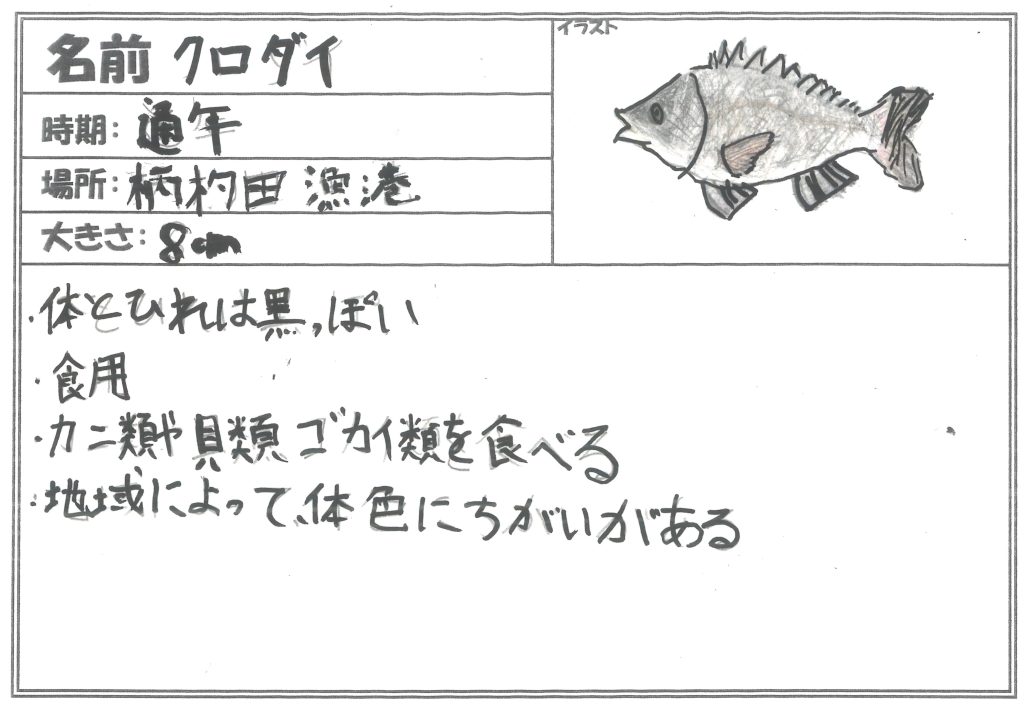 名前 クロダイ
イラスト
時期: 通年
場所: 柄杓田漁港
大きさ: 8cm
・体とひれは黒っぽい
・食用
・カニ類や貝類ゴカイ類を食べる
・地域によって、体色にちがいがある